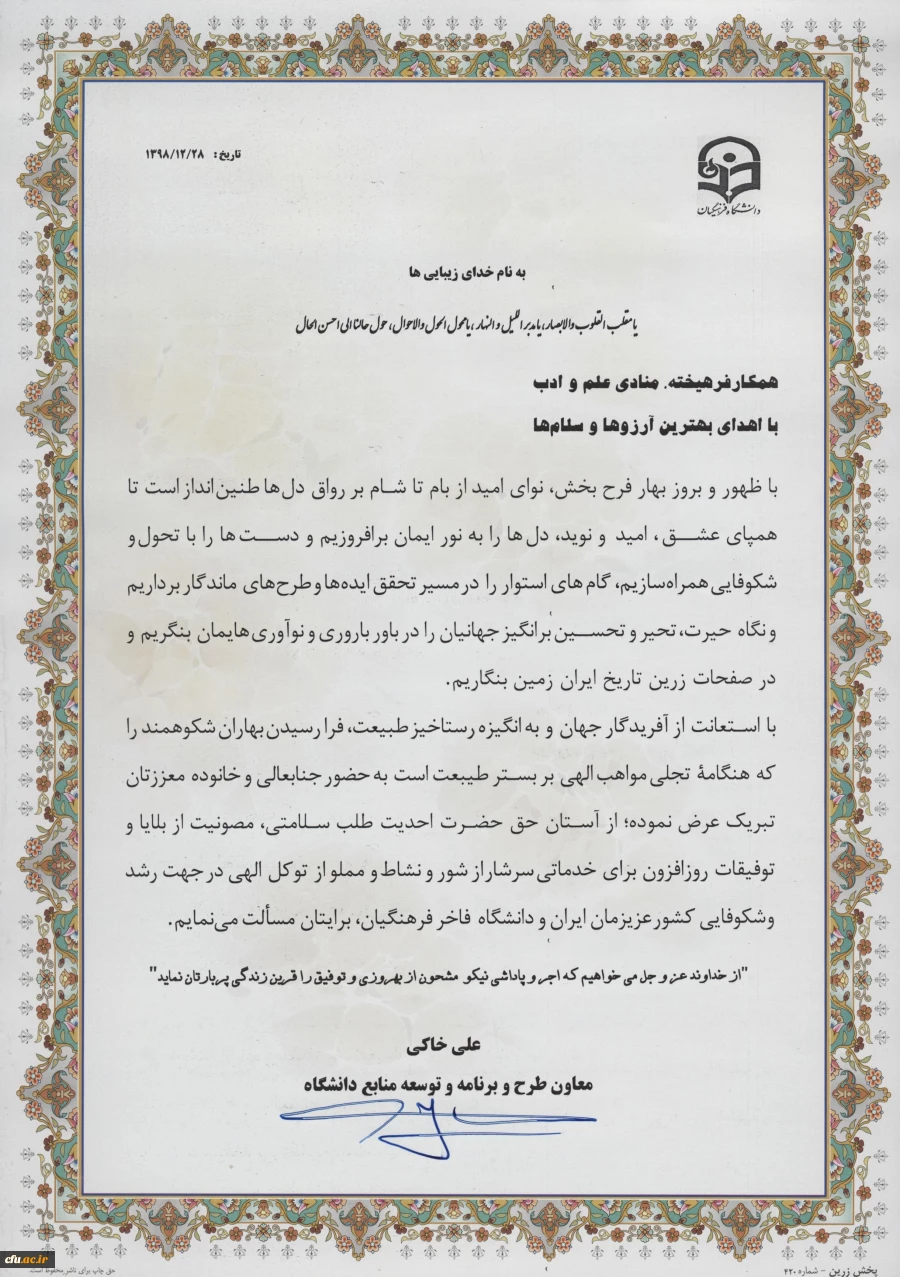 تاریخ: ۱۳۹۸/۱۲/۲۸
دانشگاه فرهنگیان
به نام خدای زیبایی ها
یا مقلب القلوب والابصار، یا مدبر اللیل و النهار، یا محول الحول والاحوال، حول حالنا الی احسن الحال
همکار فرهیخته. منادی علم و ادب
با اهدای بهترین آرزوها و سلام‌ها
با ظهور و بروز بهار فرح بخش، نوای امید از بام تا شام بر رواق دل‌ها طنین‌انداز است تا
همپای عشق، امید و نوید، دل‌ها را به نور ایمان برافروزیم و دست‌ها را با تحول و
شکوفایی همراه‌سازیم، گام‌های استوار را در مسیر تحقق ایده‌ها و طرح‌های ماندگار برداریم
و نگاه حیرت، تحیر و تحسین برانگیز جهانیان را در باور باروری و نوآوری‌هایمان بنگریم و
در صفحات زرین تاریخ ایران زمین بنگاریم.
با استعانت از آفریدگار جهان و به انگیزه رستاخیز طبیعت، فرا رسیدن بهاران شکوهمند را
که هنگامهٔ تجلی مواهب الهی بر بستر طبیعت است به حضور جنابعالی و خانوده معززتان
تبریک عرض نموده؛ از آستان حق حضرت احدیت طلب سلامتی، مصونیت از بلایا و
توفیقات روزافزون برای خدماتی سرشار از شور و نشاط و مملو از توکل الهی در جهت رشد
وشکوفایی کشور عزیزمان ایران و دانشگاه فاخر فرهنگیان، برایتان مسألت می‌نمایم.
"از خداوند عز و جل می خواهیم که اجر و پاداشی نیکو مشحون از بهروزی و توفیق را قرین زندگی پربارتان نماید"
علی خاکی
معاون طرح و برنامه و توسعه منابع دانشگاه
cfu.ac.ir
حق چاپ برای ناشر محفوظ است.
پخش زرین - شماره ۴۲۰